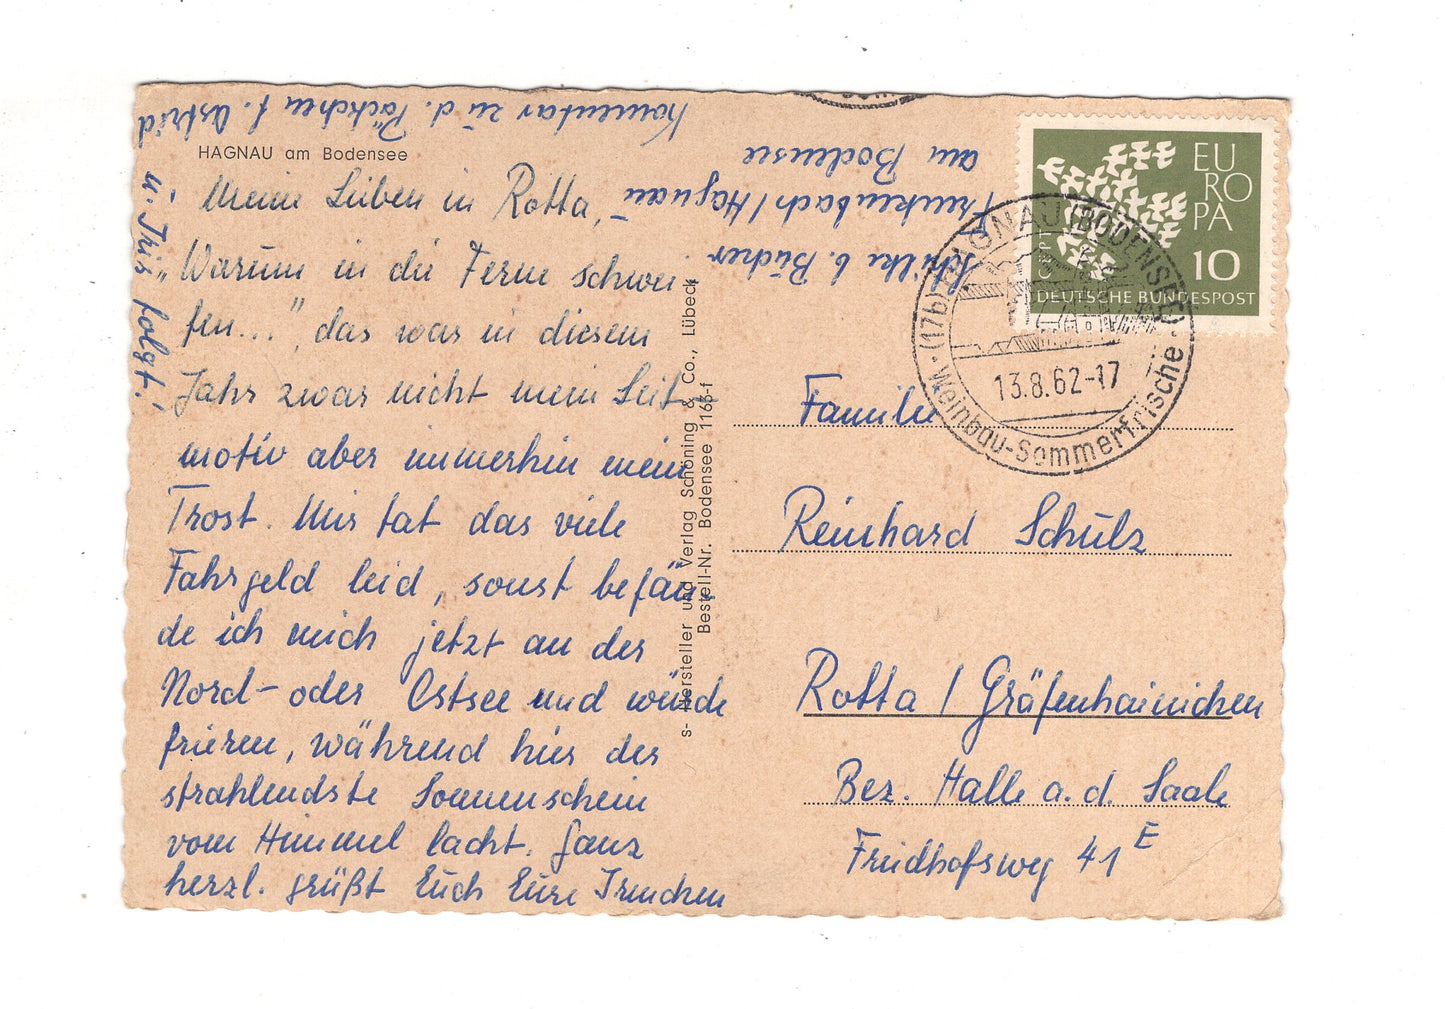 HAGNAU am Bodensee
Meine Lieben in Rotta,
"Warum in die Ferne schwei-
fen...", das war in diesem
Jahr zwar nicht mein Leit-
motiv aber immerhin mein
Trost. Mir tat das viele
Fahrgeld leid, sonst befän-
de ich mich jetzt an der
Nord- oder Ostsee und würde
frieren, während hier der
strahlendste Sonnenschein
vom Himmel lacht. Ganz
herzl. grüßt Euch Eure Irmchen
Komentar zu d. Päckchen f. Astrid
u. Iris folgt!
Schilke b. Bücher
Frenkenbach/Hagnau
am Bodensee
s- Hersteller und Verlag Schöning & Co., Lübeck
Bestell-Nr. Bodensee 1163-f
EUROPA
10
DEUTSCHE BUNDESPOST
CEPT
(17b) HAGNAU (BODENSEE)
13.8.62-17
Weinbau-Sommerfrische
Familie
Reinhard Schulz
Rotta / Gräfenhainichen
Bez. Halle a. d. Saale
Friedhofsweg 41 E